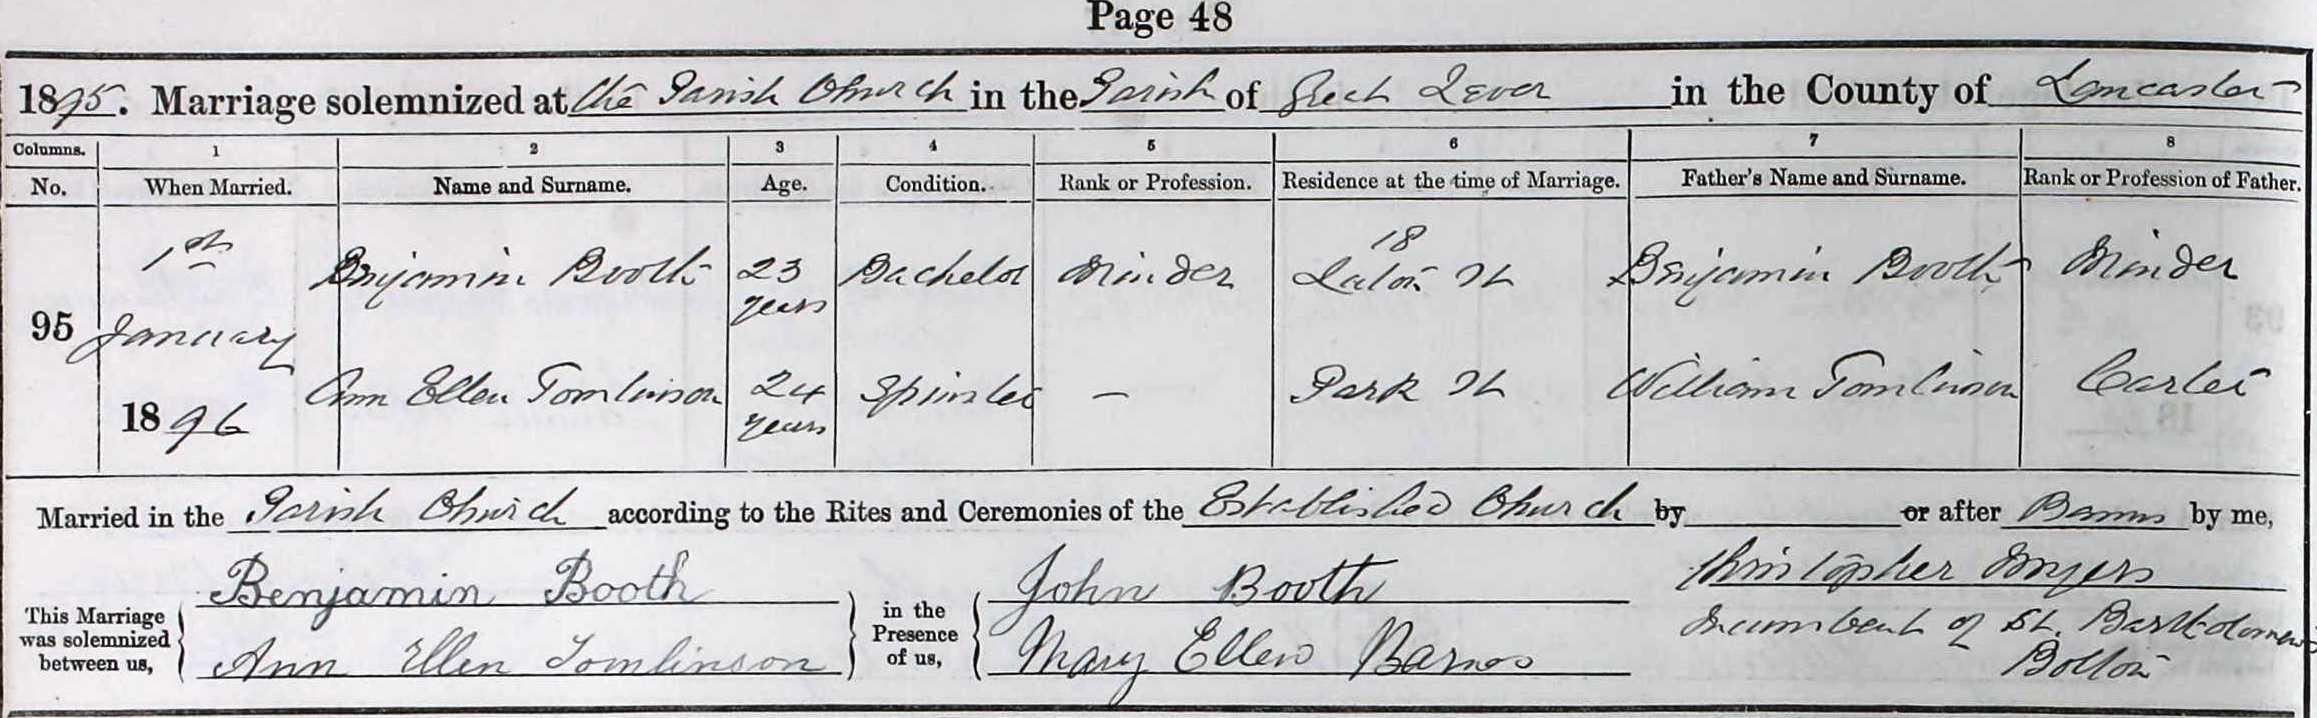 Page 48
1895. Marriage solemnized at the Parish Church in the Parish of Great Lever in the County of Lancaster
Columns. 1 2 3 4 5 6 7 8
No. When Married. Name and Surname. Age. Condition. Rank or Profession. Residence at the time of Marriage. Father's Name and Surname. Rank or Profession of Father.
1st Benjamin Booth 23 years Bachelor Minder 18 St Benjamin Booth Minder
95 January
1896 Ann Ellen Tomlinson 24 years Spinster — Park St William Tomlinson Carter
Married in the Parish Church according to the Rites and Ceremonies of the Established Church by or after Banns by me,
This Marriage was solemnized between us, Benjamin Booth in the Presence of us, John Booth Christopher Myers
Ann Ellen Tomlinson Mary Ellen Barnes Incumbent of St. Bartholomews
Bolton